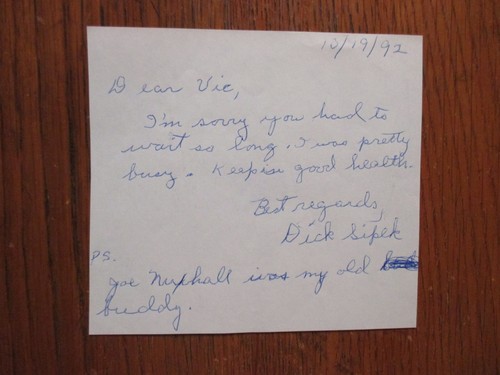 10/19/92
Dear Vic,
I'm sorry you had to
wait so long. I was pretty
busy. Keep in good health.
Best regards,
Dick Sipek
PS.
Joe Nuxhall was my old
buddy.